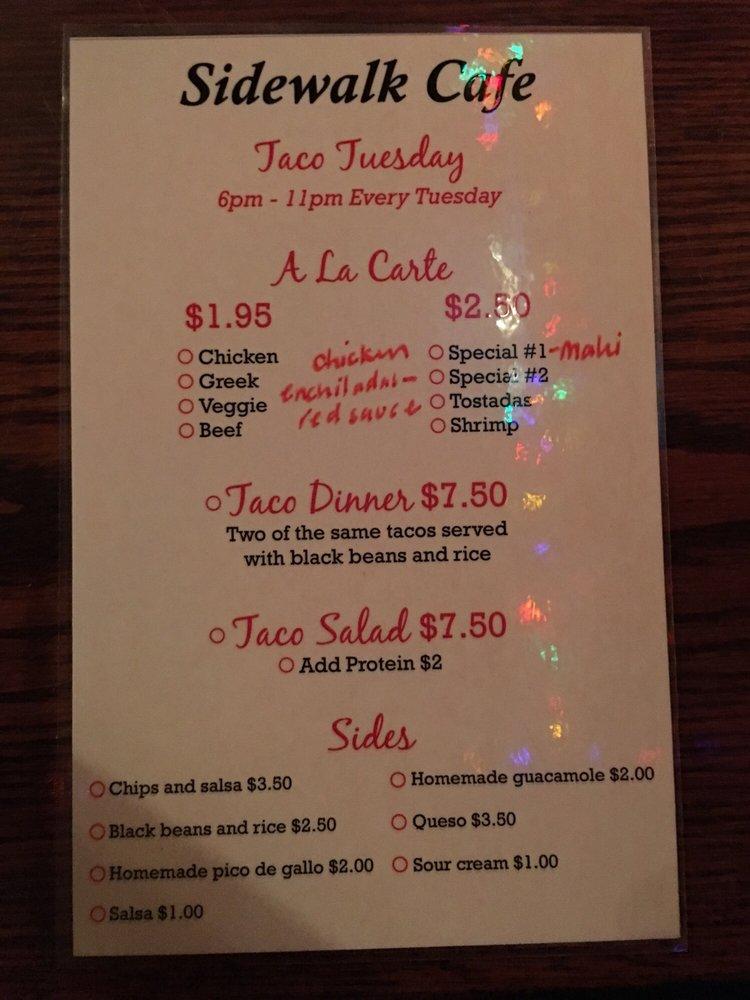 Sidewalk Cafe
Taco Tuesday
6pm - 11pm Every Tuesday
A La Carte
$1.95
Chicken
Greek
Veggie
Beef
$2.50
Special #1 - Mahi
chicken enchiladas - Special #2
red sauce
Tostadas
Shrimp
Taco Dinner $7.50
Two of the same tacos served
with black beans and rice
Taco Salad $7.50
Add Protein $2
Sides
Chips and salsa $3.50
Black beans and rice $2.50
Homemade pico de gallo $2.00
Salsa $1.00
Homemade guacamole $2.00
Queso $3.50
Sour cream $1.00